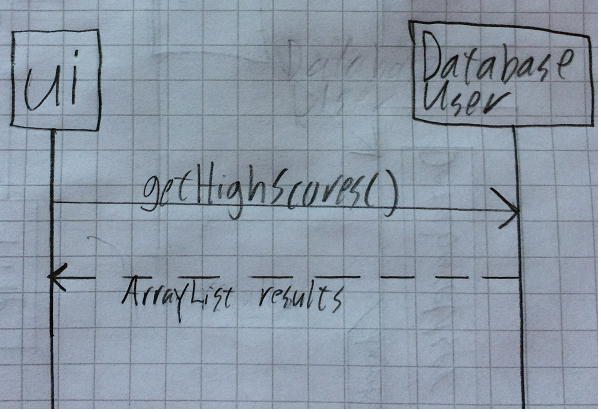 ui
Database
User
getHighScores()
ArrayList results